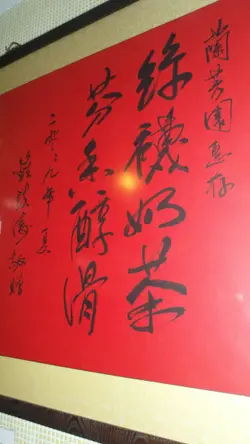 蘭芳園惠存
絲襪奶茶
芬香醇滑
二零零九年夏
敬贈